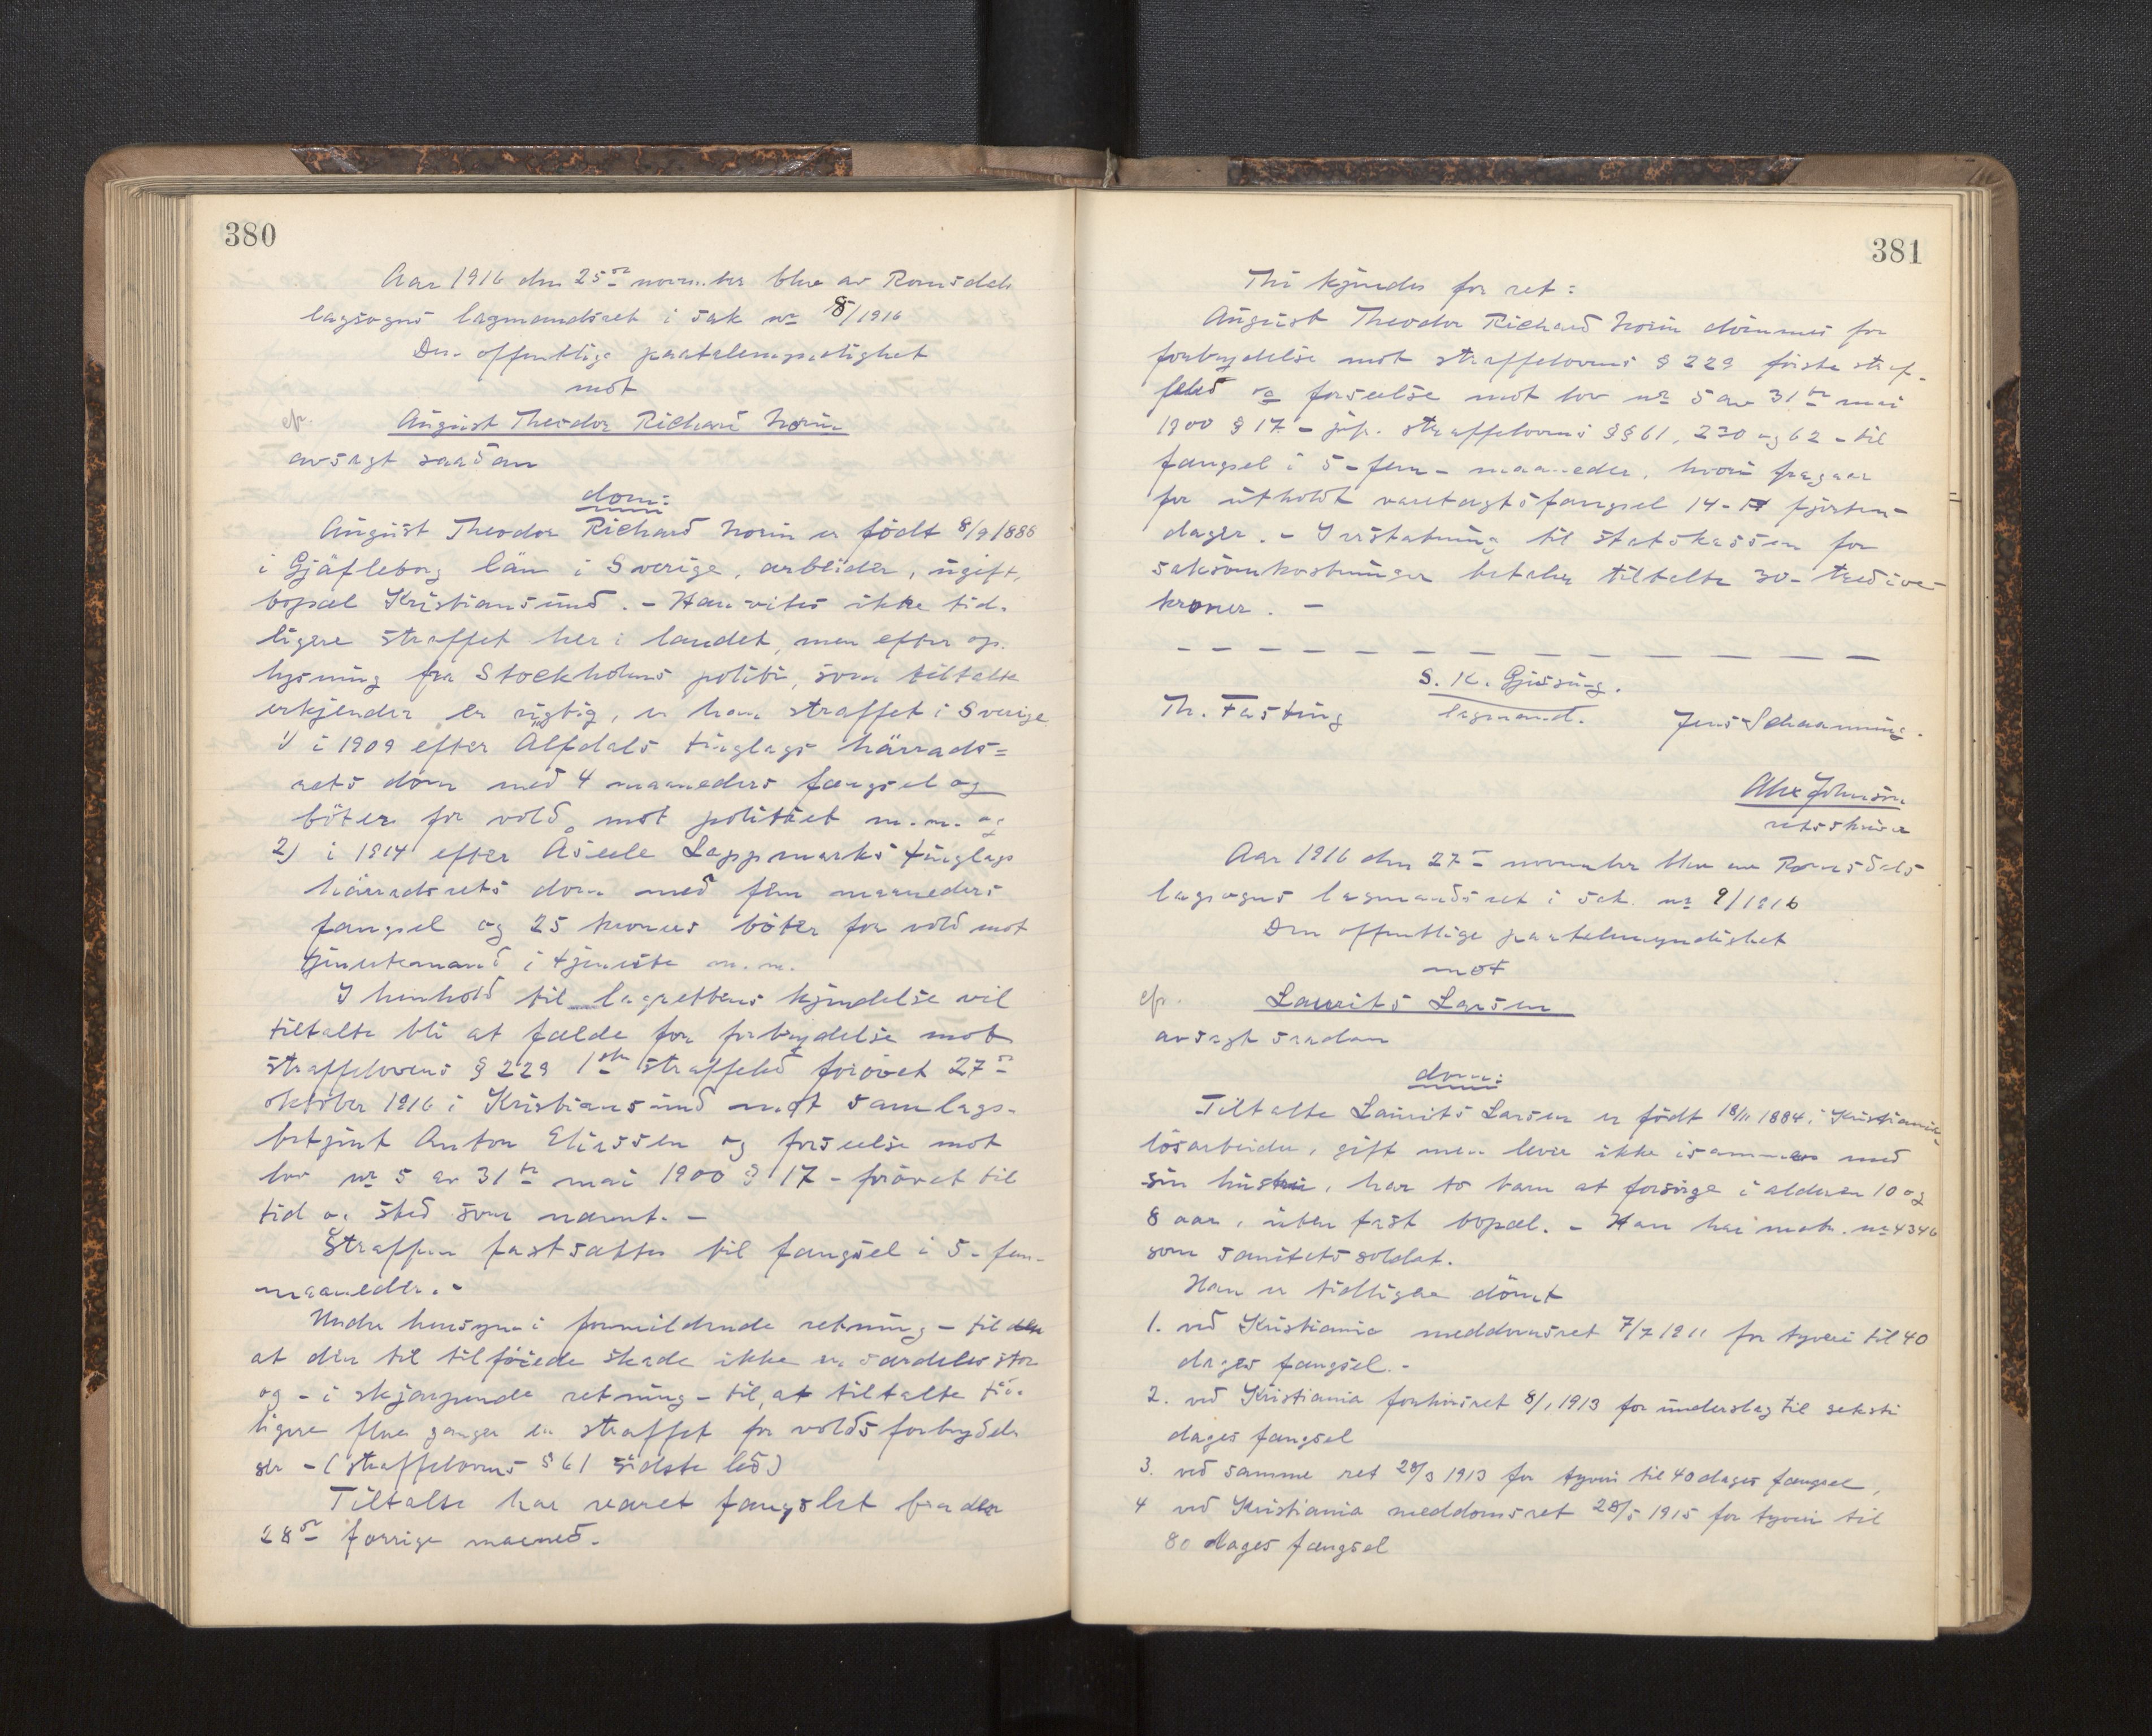 380
Aar 1916 den 25de november blev av Romsdals
lagsogns lagmandsret i sak nr 8/1916
Den offentlige paatalemyndighet
mot
August Theodor Richard Norin
avsagt saadan
dom:
August Theodor Richard Norin er födt 8/9 1886
i Gjäfleborg län i Sverige, arbeider, ugift,
bopæl Kristiansund. - Han vites ikke tid-
ligere straffet her i landet, men efter op-
lysning fra Stockholms politi, som tiltalte
erkjender er rigtig, er han straffet i Sverige
1) i 1909 efter Alfdals tinglags härrads=
rets dom med 4 maaneders fængsel og
böter for vold mot politiet m.m. og
2) i 1914 efter Åsele Lappmarks tinglags
härradsrets dom med fem maaneders
fængsel og 25 kroners böter for vold mot
tjenestemand i tjeneste m.m.
I henhold til lagrettens kjendelse vil
tiltalte bli at fælde for forbrydelse mot
straffelovens § 229 1ste straffeled forövet 27de
oktober 1916 i Kristiansund mot samlags-
betjent Anton Eliassen og forseelse mot
lov nr 5 av 31te mai 1900 § 17 - forövet til
tid og sted som nævnt. -
Straffen fastsættes til fængsel i 5 - fem -
maaneder. -
Under hensyn i formildende retning - til den
at den til tilföiede skade ikke er særdeles stor
og - i skjærpende retning - til, at tiltalte tid-
ligere flere ganger er straffet for voldsforbrydel-
ser - (straffelovens § 61 sidste led)
Tiltalte har været fængslet fra den
28de forrige maaned.
381
Thi kjendes for ret:
August Theodor Richard Norin dömmes for
forbrydelse mot straffelovens § 229 förste straf-
feled og forseelse mot lov nr 5 av 31te mai
1900 § 17 - jvf. straffelovens §§ 61, 230 og 62 - til
fængsel i 5 - fem - maaneder, hvori fragaar
for utholdt varetægtsfængsel 14 - fjorten -
dager. - I erstatning til statskassen for
saksomkostninger betaler tiltalte 30 - tredive -
kroner. -
S. K. Gjessing.
lagmand.
Th. Fasting
Jens Schaanning.
Alex Johnson
retsskriver
Aar 1916 den 27de november blev av Romsdals
lagsogns lagmandsret i sak nr 9/1916
Den offentlige paatalemyndighet
mot
Laurits Larsen
avsagt saadan
dom:
Tiltalte Laurits Larsen er födt 18/11 1884 i Kristiania,
lösarbeider, gift men lever ikke isammen med
sin hustru, har to barn at forsörge i alderen 10 og
8 aar, uten fast bopæl. - Han har matr. nr 4346
som sanitetssoldat.
Han er tidligere dömt
1. ved Kristiania meddomsret 7/7 1911 for tyveri til 40
dages fængsel. -
2. ved Kristiania forhörsret 8/1 1913 for underslag til seksti
dages fængsel
3. ved samme ret 28/3 1913 for tyveri til 40 dages fængsel,
4 ved Kristiania meddomsret 28/5 1915 for tyveri til
80 dages fængsel